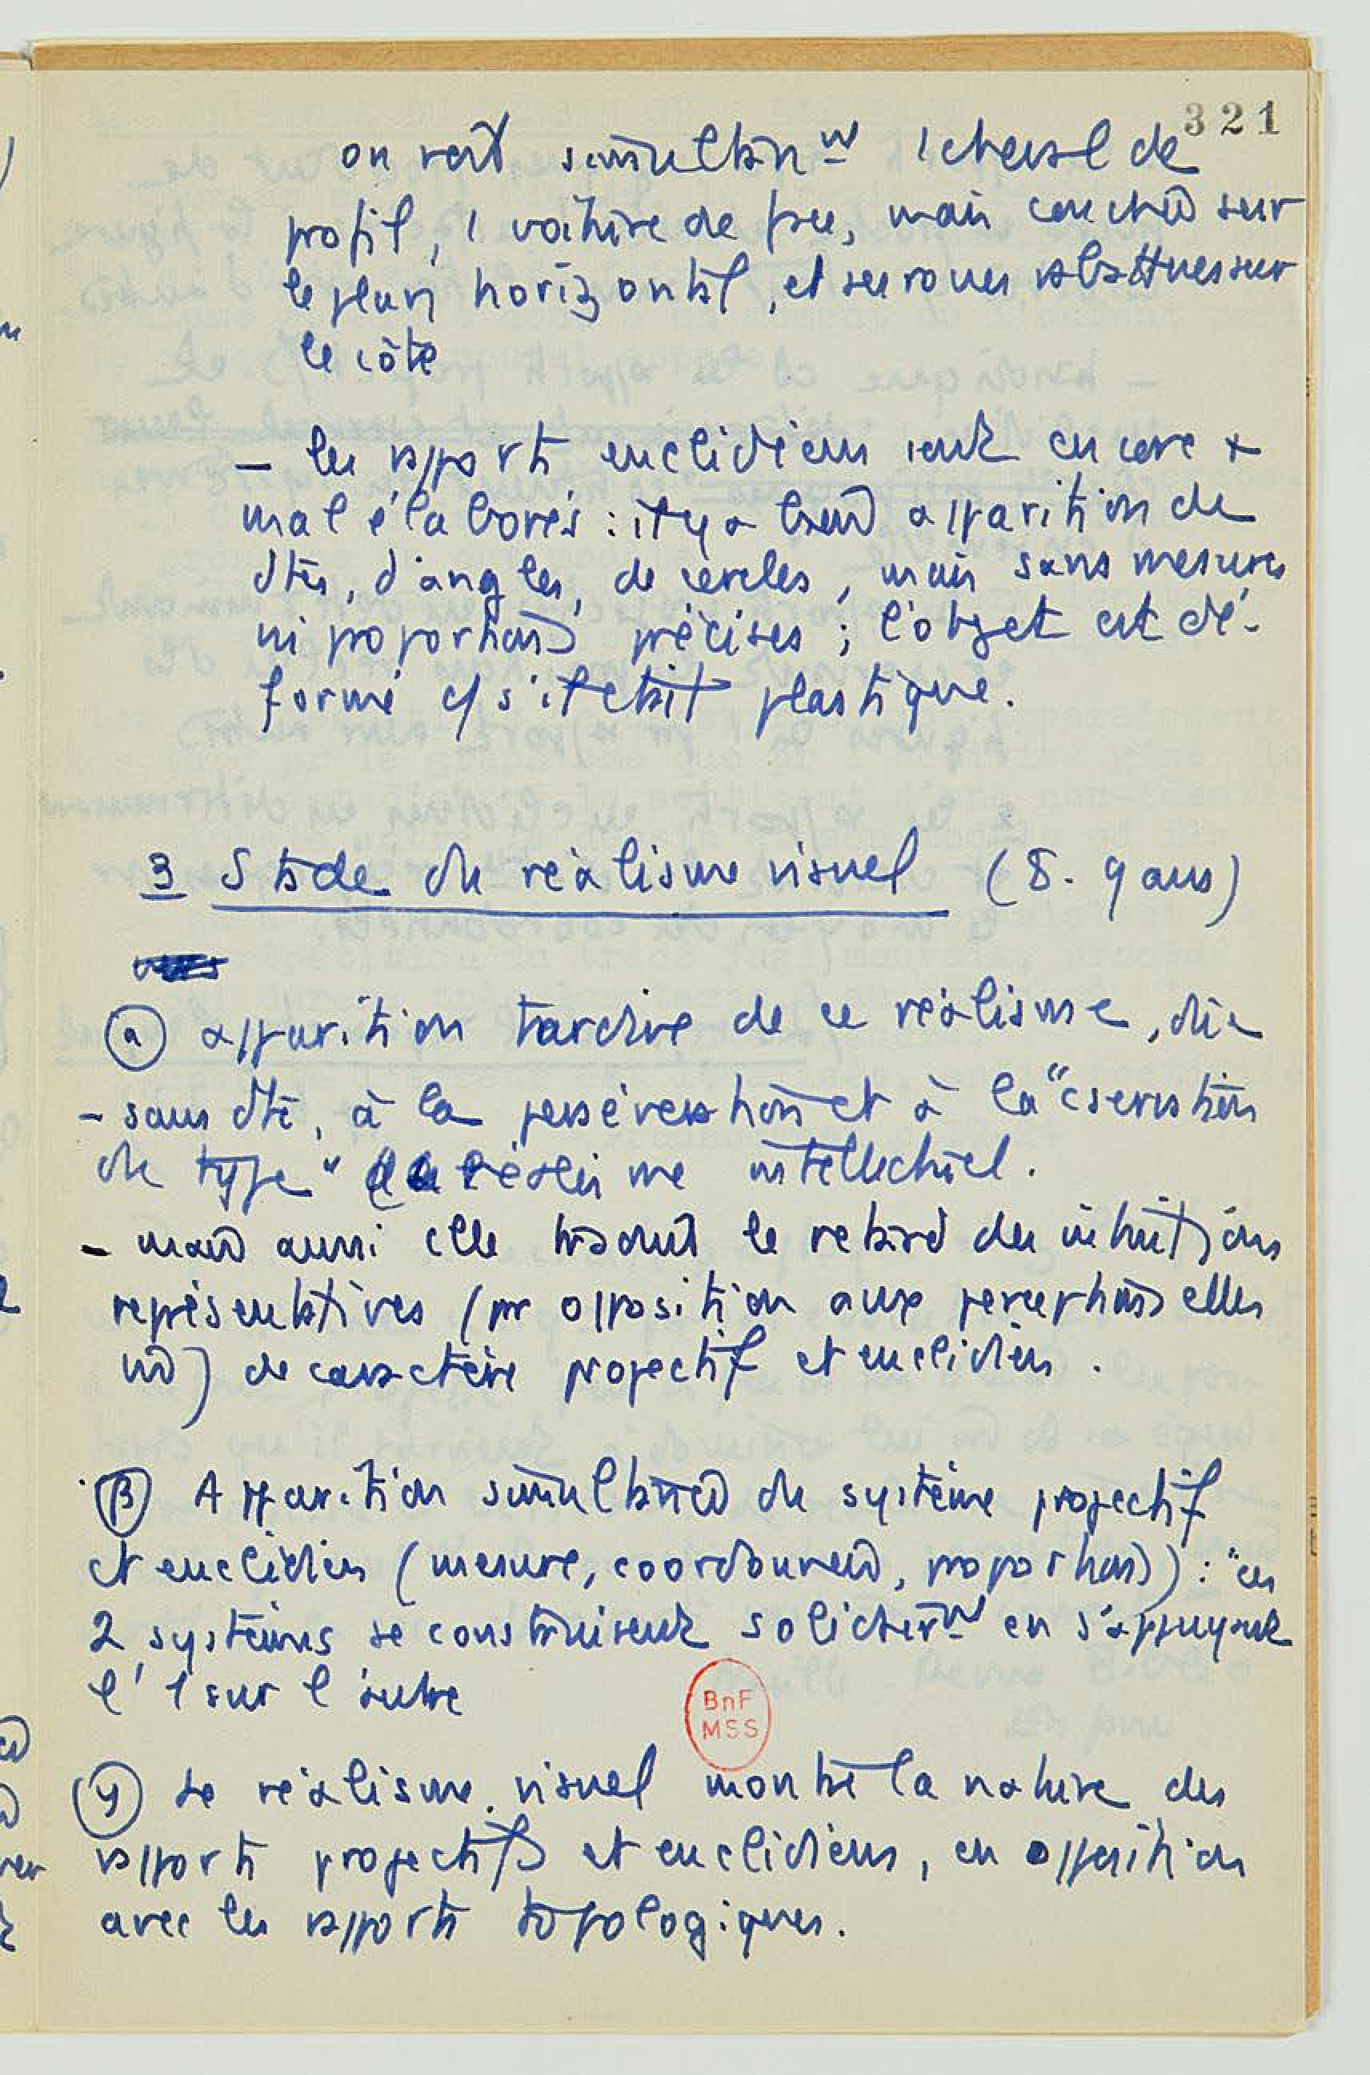 321
on voit simultanᵗ 1 cheval de
profil, 1 voiture de face, mais couchée sur
le plan horizontal, et ses roues rabattues sur
le côté
– les rapports euclidiens sont encore +
mal élaborés : il y a bien apparition de
dtes, d'angles, de cercles, mais sans mesures
ni proportions précises ; l'objet est dé-
formé c/ s'il était plastique.
3 Stade du réalisme visuel (8. 9 ans)
(α) apparition tardive de ce réalisme, dûe
– sans dte, à la persévération et à la "cservation
du type" du réalisme intellectuel.
– mais aussi elle traduit le retard des intuitions
représentatives (pr opposition aux perceptions elles
) de caractère projectif et euclidien.
(β) Apparition simultanée du système projectif
et euclidien (mesure, coordonnées, proportions) : "ces
2 systèmes se construisent solidairᵗ en s'appuyant
l'1 sur l'autre
BnF
MSS
(γ) Le réalisme visuel montre la nature des
rapports projectifs et euclidiens, en opposition
avec les rapports topologiques.